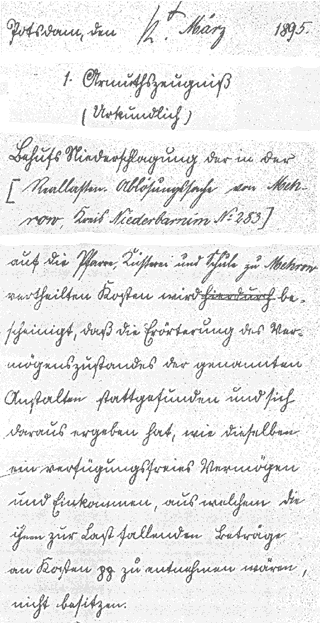 Potsdam, den 12t. März 1895.
1. Armuthszeugniß
(Urkundlich)
Behufs Niederschlagung der in der
[Reallasten-Ablösungssache von Meh-
row, Kreis Niederbarnim No 283]
auf die Pfarre, Küsterei und Schule zu Mehrow
vertheilten Kosten wird hierdurch be-
scheinigt, daß die Erörterung des Ver-
mögenszustandes der genannten
Anstalten stattgefunden und sich
daraus ergeben hat, wie dieselben
ein verfügungsfreies Vermögen
und Einkommen, aus welchem die
ihnen zur Last fallenden Beträge
an Kosten pp zu entnehmen wären,
nicht besitzen.